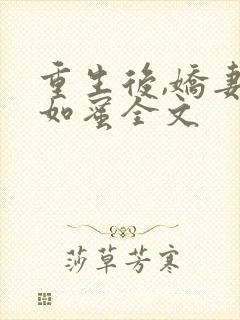 重生後,嬌妻
如蜜全文
莎草芳寒